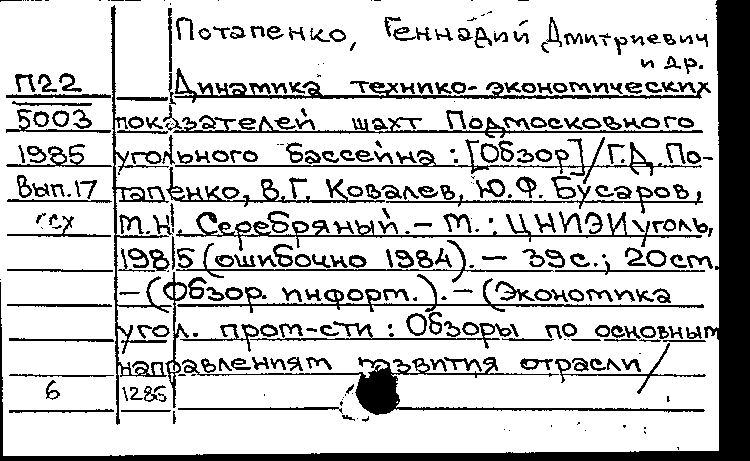 Потапенко, Геннадий Дмитриевич
и др.
П22 Динамика технико-экономических
5003 показателей шахт Подмосковного
1985 угольного бассейна : [Обзор] / Г.Д. По-
Вып.17 тапенко, В.Г. Ковалев, Ю.Ф. Бусаров,
М.Н. Серебряный. — М. : ЦНИЭИуголь,
1985 (ошибочно 1984). — 39с.; 20см.
— (Обзор. информ.). — (Экономика
угол. пром-сти : Обзоры по основным
направлениям развития отрасли /
6 1286